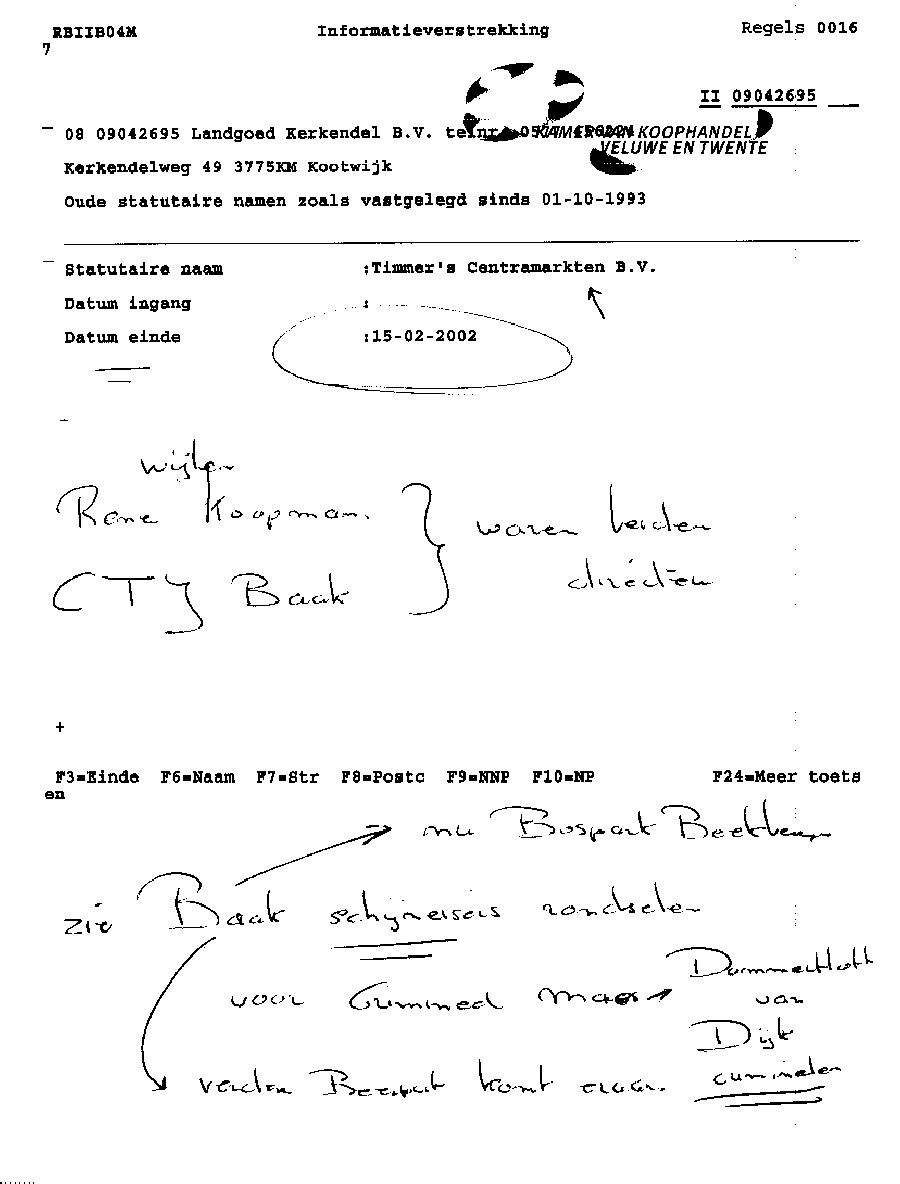 RBIIB04M Informatieverstrekking Regels 0016
7
II 09042695
08 09042695 Landgoed Kerkendel B.V. telnr.
KAMER VAN KOOPHANDEL
VELUWE EN TWENTE
Kerkendelweg 49 3775KM Kootwijk
Oude statutaire namen zoals vastgelegd sinds 01-10-1993
Statutaire naam :Timmer's Centramarkten B.V.
Datum ingang :
Datum einde :15-02-2002
wijlen
Rene Koopman
CTJ Baak
waren beiden
+
F3=Einde F6=Naam F7=Str F8=Postc F9=NNP F10=NP F24=Meer toets
en
nu Bospark
zie Baak rondselen
voor
van
Dijk
komt